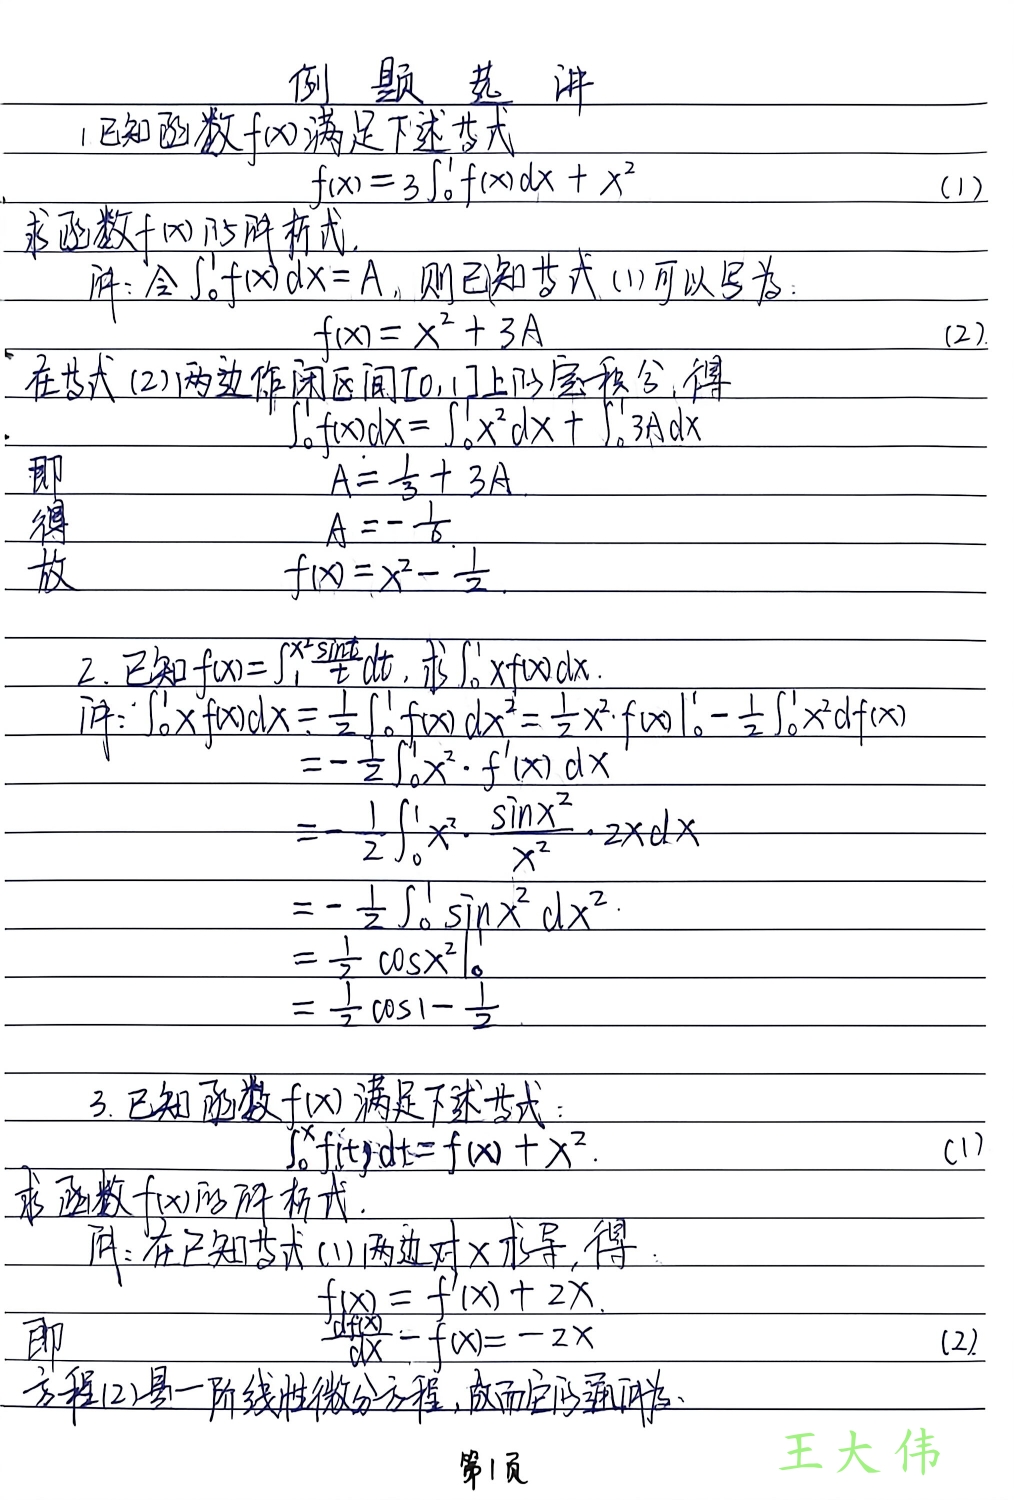 例 题 范 讲
1.已知函数f(x)满足下述等式
f(x)=3∫₀¹f(x)dx+x² (1)
求函数f(x)的解析式.
解:令∫₀¹f(x)dx=A,则已知等式(1)可以写为:
f(x)=x²+3A (2).
在等式(2)两边作闭区间[0,1]上的定积分,得
∫₀¹f(x)dx=∫₀¹x²dx+∫₀¹3Adx
即 A=1/3+3A.
得 A=-1/6.
故 f(x)=x²-1/2.
2.已知f(x)=∫₁^(x²) (sint/t)dt,求∫₀¹xf(x)dx.
解:∫₀¹xf(x)dx=1/2∫₀¹f(x)dx²=1/2x²·f(x)|₀¹-1/2∫₀¹x²df(x)
=-1/2∫₀¹x²·f'(x)dx
=-1/2∫₀¹x²·(sinx²/x²)·2xdx
=-1/2∫₀¹sinx²dx².
=1/2cosx²|₀¹
=1/2cos1-1/2.
3.已知函数f(x)满足下述等式:
∫₀ˣf(t)dt=f(x)+x². (1)
求函数f(x)的解析式.
解:在已知等式(1)两边对x求导,得:
f(x)=f'(x)+2x.
即 df(x)/dx-f(x)=-2x (2).
方程(2)是一阶线性微分方程,故而它的通解为:
第1页
王大伟